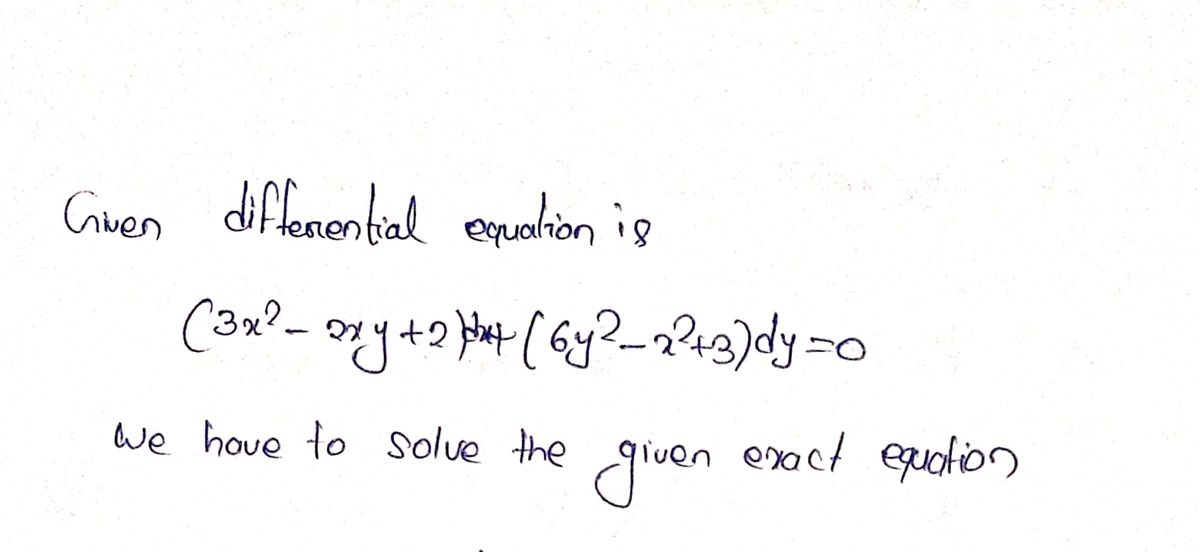 Given differential equation is
(3x²- 2xy +2)dx+(6y²-x²+3)dy=0
we have to solve the given exact equation